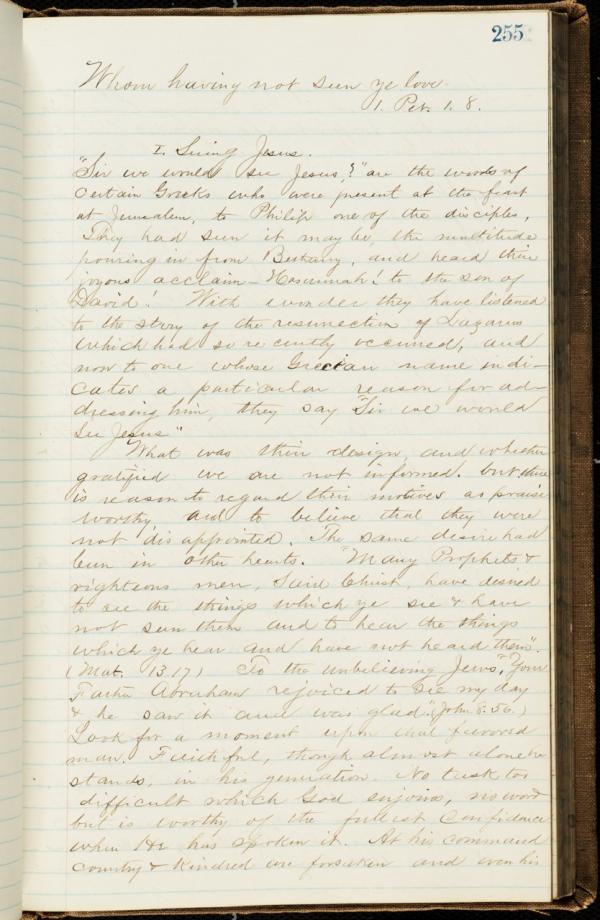 255
Whom having not seen ye love.
1. Pet. 1. 8.
I. Seeing Jesus.
"Sir we would see Jesus,?" are the words of
certain Greeks who were present at the feast
at Jerusalem, to Philip one of the disciples,
They had seen it may be, the multitude
pouring in from Bethany, and heard their
joyous acclaim - Hosannah! to the son of
David! With wonder they have listened
to the story of the resurrection of Lazarus
which had so recently occurred, and
now to one whose Grecian name indi-
cates a particular reason for ad-
dressing him, they say "Sir we would
see Jesus"
What was their design, and whether
gratified we are not informed. but there
is reason to regard their motives as praise
worthy, and to believe that they were
not disappointed. The same desire had
been in other hearts. "Many Prophets &
righteous men, said Christ, have desired
to see the things which ye see & have
not seen them and to hear the things
which ye hear and have not heard them".
(Mat. 13.17) To the unbelieving Jews, "Your
Father Abraham rejoiced to see my day
& he saw it and was glad". (John 8.56.)
Look for a moment upon that favored
man. Faithful, though almost alone he
stands, in his generation. No task too
difficult which God enjoins, no word
but is worthy of the fullest confidence
when He has spoken it. At his command
country & kindred are forsaken and even his